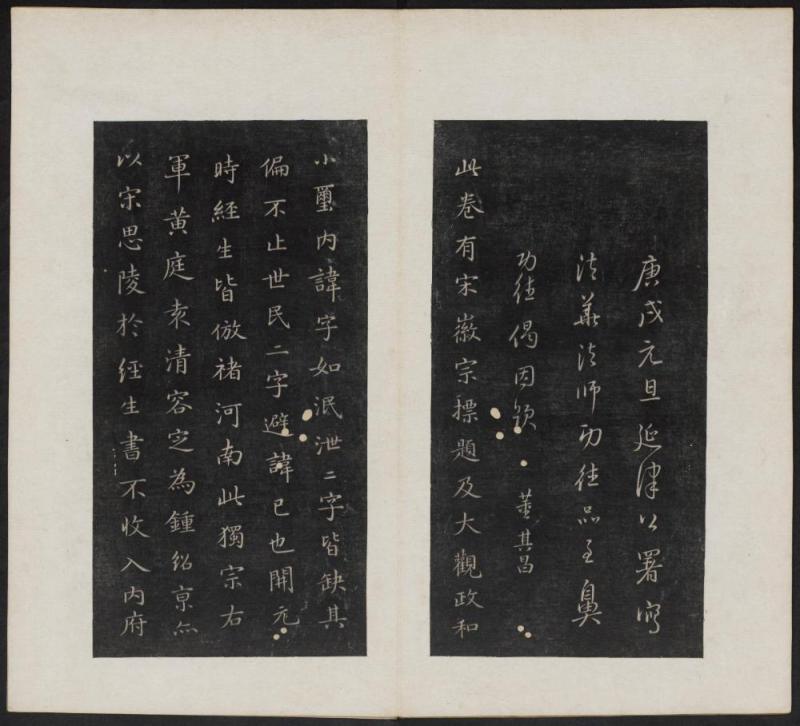 庚戌元旦延津公署寫
法華法師功德品至鼻
功德偈因題
董其昌
此卷有宋徽宗標題及大觀政和
小璽内諱字如泯泄二字皆缺其
偏不止世民二字避諱已也開元
時經生皆倣褚河南此獨宗右
軍黄庭袁清容定為鍾紹京亦
以宋思陵於經生書不收入内府